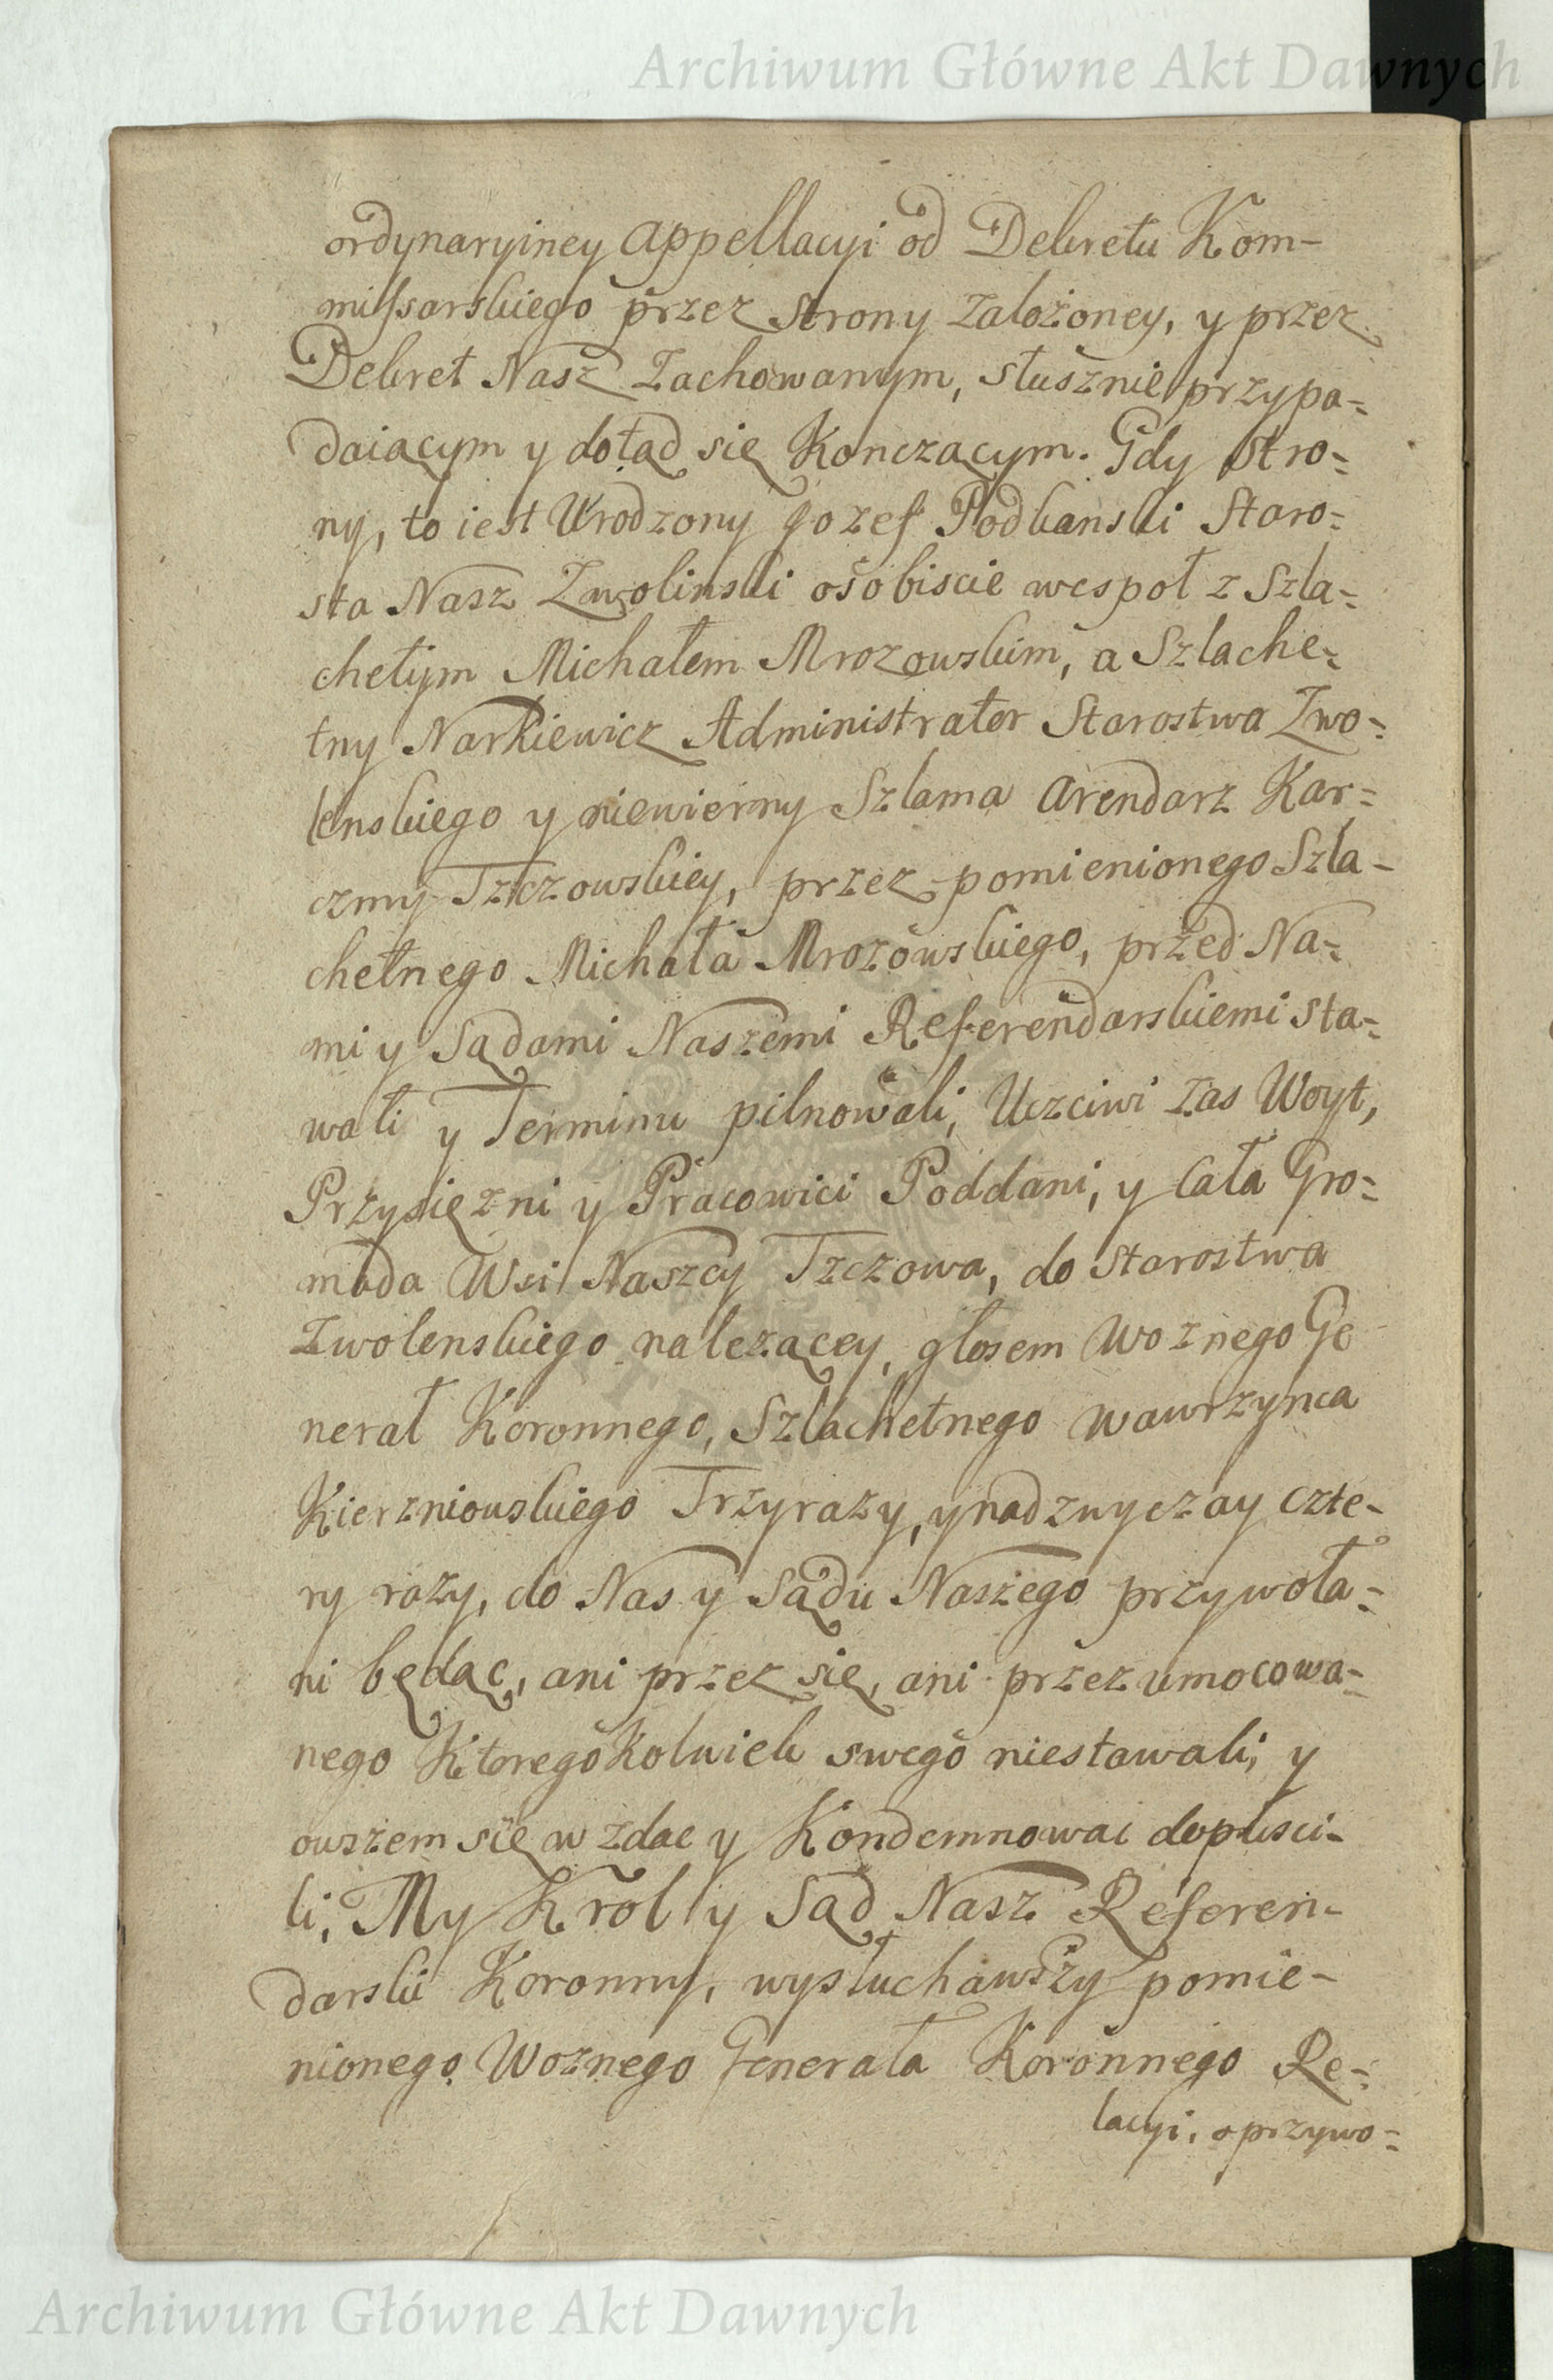 Archiwum Główne Akt Dawnych
ordynaryiney appellacyi od Dekretu Kom-
missarskiego przez Strony Założoney, y przez
Dekret Nasz Zachowanym, słusznie przypa=
daiącym y dotąd się Konczącym. Gdy Stro=
ny, to iest Urodzony Jozef Podkanski Staro=
sta Nasz Zwolinski osobiscie wespoł z Szla=
chetym Michałem Mrozowskim, a Szlache=
tny Narkiewicz Administrator Starostwa Zwo=
lenskiego y niewierny Szlama arendarz Kar=
czmy Tzczowskiey, przez pomienionego Szla-
chetnego Michała Mrozowskiego, przed Na=
mi y Sądami Naszemi Referendarskiemi sta=
wali y Terminu pilnowali, Uczciwi zas Woyt,
Przysięzni y Pracowici Poddani, y cała Gro=
mada Wsi Naszey Tzczowa, do Starostwa
Zwolenskiego nalezącey, głosem Woznego Ge
nerał Koronnego, Szlachetnego Wawrzynca
Kierzniowskiego Trzyrazy, y nad zwyczay czte-
ry razy, do Nas y Sądu Naszego przywoła=
ni będąc, ani przez się, ani przez umocowa=
nego Ktoregokolwiek swego niestawali, y
owszem się w zdac y Kondemnowac dopusci-
li, My Krol y Sąd Nasz Referen-
darski Koronny, wysłuchawszy pomie-
nionego Woznego Generała Koronnego Re=
lacyi, o przywo=
Archiwum Główne Akt Dawnych